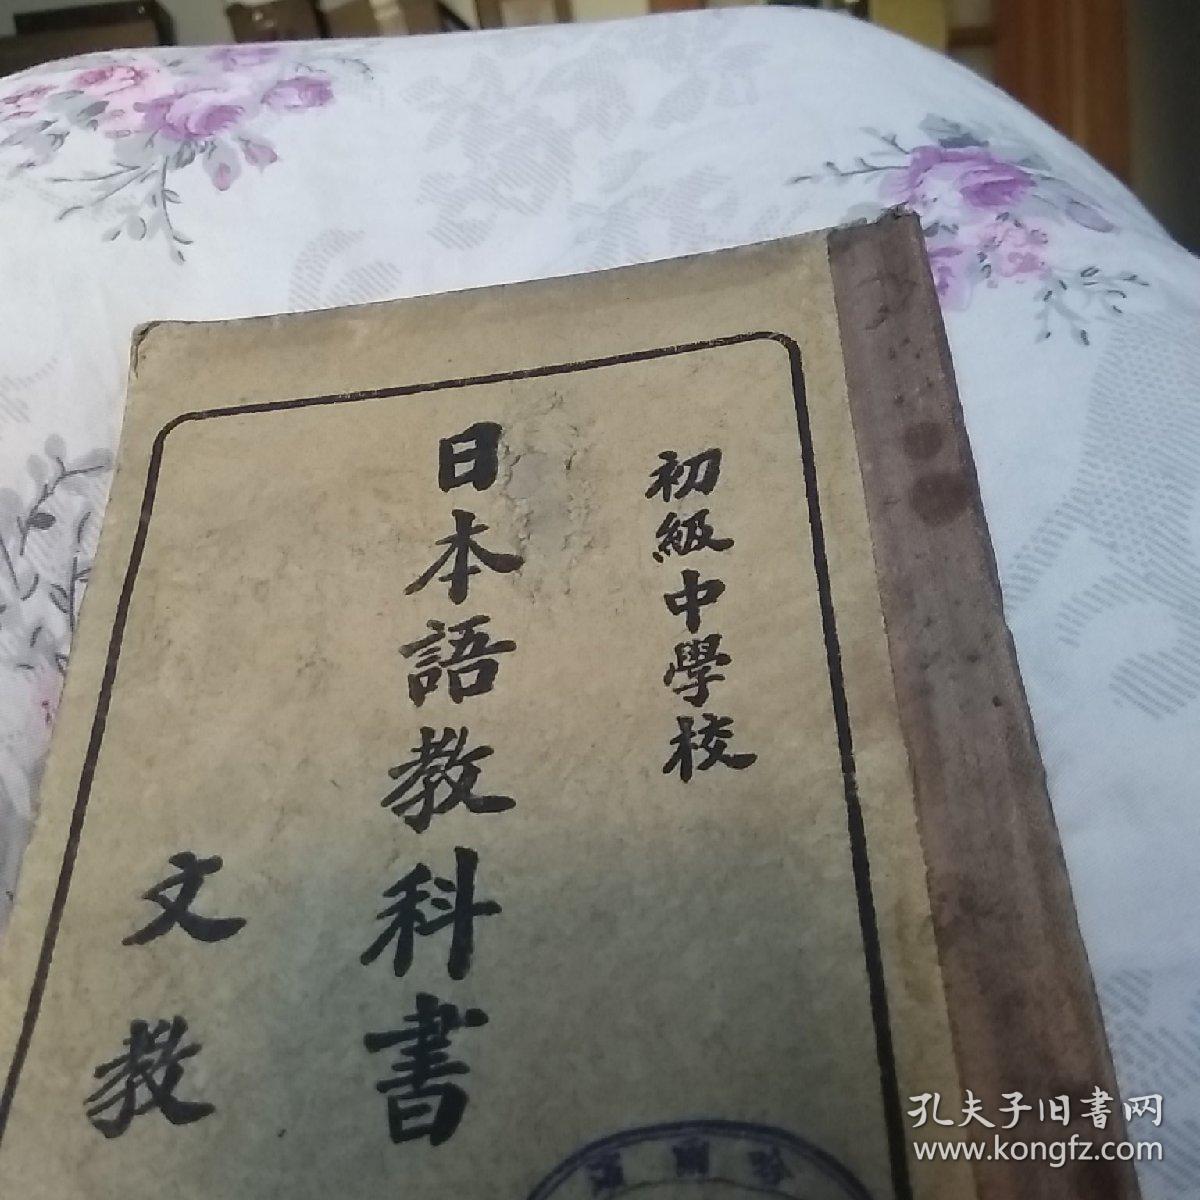 初級中學校
日本語教科書
文教
孔夫子旧書网
www.kongfz.com